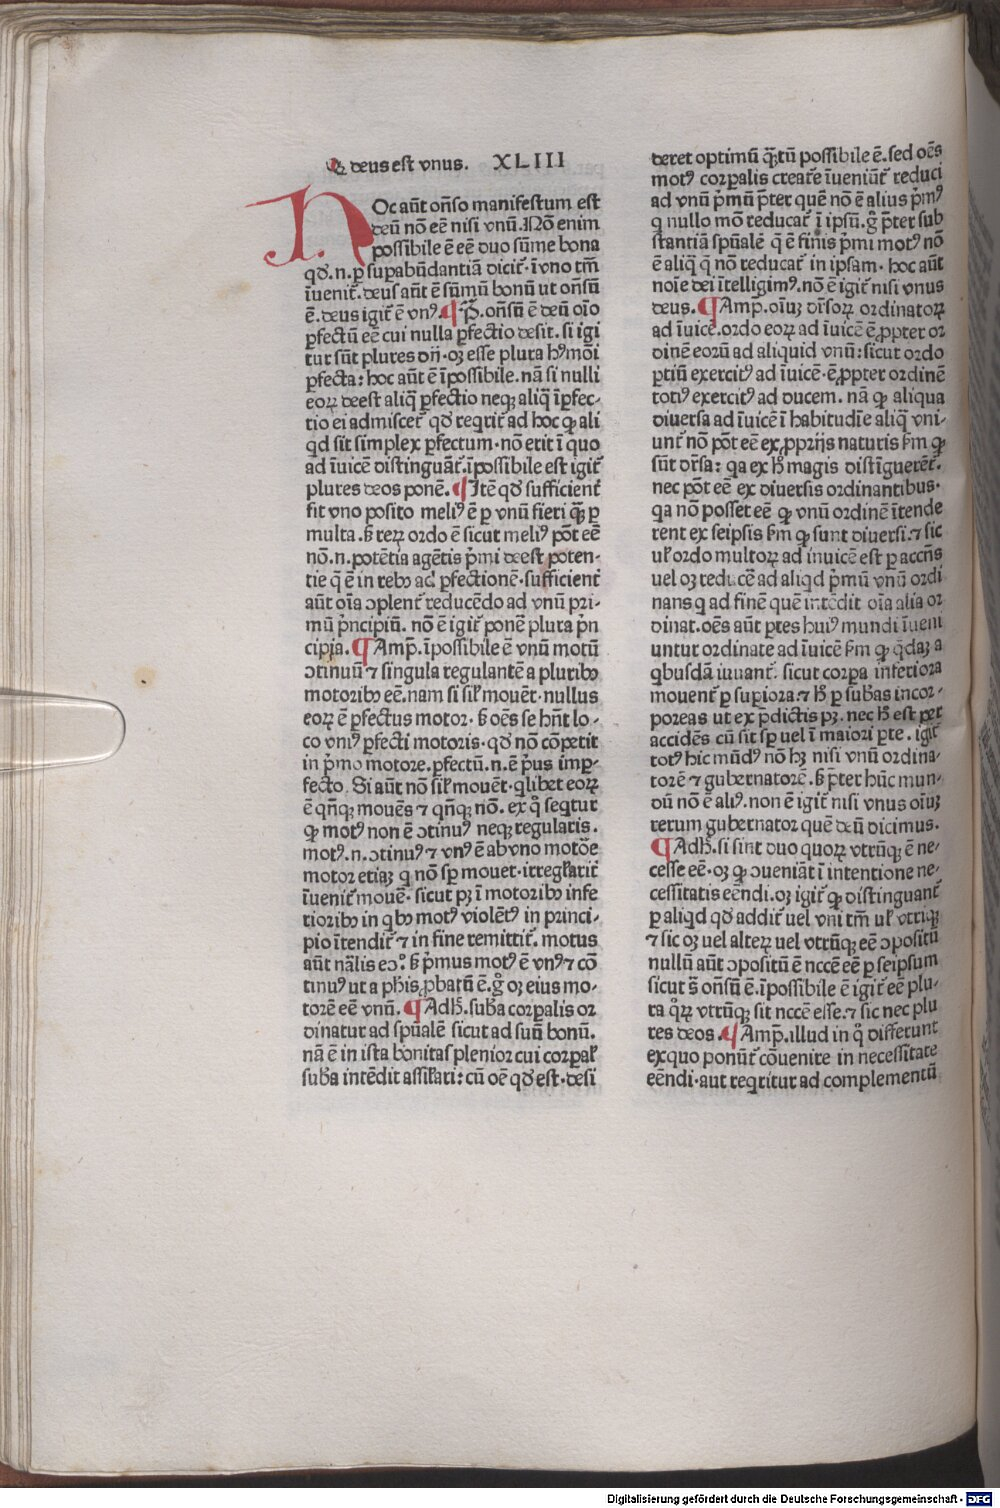 Q deus est vnus. XLIII
HOc aūt oñso manifestum est
deū nō eē nisi vnū. Nō enim
possibile ē eē duo sūme bona
qđ.n. ꝑ suꝑabūdantiā dicit᷑. ī vno tm̄
īuenit᷑. deus aūt ē sūmū bonū ut oñsū
ē. deus igit᷑ ē vnꝰ. ¶ P̄. oñsū ē deū oīo
ꝑfectū eē cui nulla ꝑfectio desit. si igi
tur sūt plures dīj. oꝫ esse plura hꝰmōi
ꝑfecta: hoc aūt ē īpossibile. nā si nulli
eoꝝ deest aliq̄ ꝑfectio neqꝫ aliq̄ īꝑfec-
tio ei admiscet᷑ qđ req̇rit᷑ ad hoc ꝙ ali
qđ sit simplex ꝑfectum. nō erit ī quo
ad īuicē distinguāt᷑. īpossibile est igit᷑
plures deos ponē. ¶ Itē qđ sufficient᷑
fit vno posito meliꝰ ē ꝑ vnū fieri q̄ꝫ ꝑ
multa. ẞ reꝝ ordo ē sicut meliꝰ pōt eē
nō.n. potētia agētis p̄mi deest poten-
tie q̄ ē in rebꝰ ad ꝑfectionē. sufficient᷑
aūt oīa ꝯplent᷑ reducēdo ad vnū pri-
mū p̄ncipiū. nō ē igit᷑ ponē plura p̄n
cipia. ¶ Amp̄. īpossibile ē vnū motū
ꝯtinuū ⁊ singula regulantē a pluribꝰ
motoribꝰ eē. nam si siɫ mouēt. nullus
eoꝝ ē ꝑfectus motor. ẞ oēs se hñt lo-
co vniꝰ ꝑfecti motoris. qđ nō cōpetit
in p̄mo motore. ꝑfectū.n. ē p̄us imꝑ-
fecto. Si aūt nō siɫ mouēt. qlibet eoꝝ
ē qn̄qꝫ mouēs ⁊ qn̄qꝫ nō. ex q̊ seqtur
ꝙ motꝰ non ē ꝯtinuꝰ neqꝫ regularis.
motꝰ.n. ꝯtinuꝰ ⁊ vnꝰ ē ab vno motōe
motor etiaꝫ q nō sꝑ mouet. irregɫarit᷑
īuenit᷑ mouē. sicut pꝫ ī motoribꝰ infe
rioribꝰ in qbꝰ motꝰ violētꝰ in princi-
pio ītendit᷑ ⁊ in fine remittit᷑. motus
aūt nālis eꝯͦ. ẞ p̄mus motꝰ ē vnꝰ ⁊ cō
tinuꝰ ut a phis ꝓbatū ē. g̊ oꝫ eius mo-
torē eē vnū. ¶ Adh̄. suba corꝑalis or
dinatur ad spūalē sicut ad suū bonū.
nā ē in ista bonitas plenior cui corꝑaɫ
suba intēdit assiɫari: cū oē qđ est. desi
deret optimū q̄ꝫtū possibile ē. sed oēs
motꝰ corꝑalis creatꝛe īueniūt᷑ reduci
ad vnū p̄mū p̄ter quē nō ē alius p̄mꝰ
q nullo mō reducat᷑ ī ipsū. g̊ p̄ter sub
stantiā spūalē q̄ ē finis p̄mi motꝰ nō
ē aliq̄ q̄ nō reducat᷑ in ipsam. hoc aūt
noīe dei ītelligimꝰ. nō ē igit᷑ nisi vnus
deus. ¶ Amp̄. oīuꝫ dr̄soꝝ ordinatoꝝ
ad īuicē. ordo eoꝝ ad īuicē ē ꝓpter or
dinē eorū ad aliquid vnū: sicut ordo
ꝑtiū exercitꝰ ad īuicē. ē ꝓpter ordinē
totiꝰ exercitꝰ ad ducem. nā ꝙ aliqua
diuersa ad īuicē ī habitudīe aliq̄ vni-
unt᷑ nō pōt eē ex ꝓprijs naturis ẞm ꝙ
sūt dr̄sa: qa ex h̄ magis distīguerēt᷑.
nec pōt eē ex diuersis ordinantibus.
qa nō posset eē ꝙ vnū ordinē ītende
rent ex seipsis ẞm ꝙ sunt diuersi. ⁊ sic
uɫ ordo multoꝝ ad inuicē est ꝑ accn̄s
uel oꝫ reducē ad aliqd p̄mū vnū ordi
nans q ad finē quē intēdit oīa alia or
dinat. oēs aūt ꝑtes huiꝰ mundi īueni
untur ordinate ad īuicē ẞm ꝙ q̄daꝫ a
qbusdā iuuant᷑. sicut corpa inferiora
mouent᷑ ꝑ suꝑiora ⁊ h̄ ꝑ subas incor-
poreas ut ex p̄dictis pꝫ. nec h̄ est per
accidēs cū sit sꝑ uel ī maiori ꝑte. igit᷑
totꝰ hic mūdꝰ nō hꝫ nisi vnū ordina-
torē ⁊ gubernatorē. ẞ p̄ter hūc mun-
dū nō ē aliꝰ. non ē igit᷑ nisi vnus oīuꝫ
rerum gubernator quē deū dicimus.
¶ Adh̄. si sint duo quoꝝ vtrūqꝫ ē ne-
cesse eē. oꝫ ꝙ ꝯueniāt ī intentione ne-
cessitatis eēndi. oꝫ igit᷑ ꝙ distinguant᷑
ꝑ aliqd qđ addit᷑ uel vni tm̄ uɫ vtriqꝫ
⁊ sic oꝫ uel alteꝝ uel vtrūqꝫ eē ꝯpositū
nullū aūt ꝯpositū ē nccē eē ꝑ seipsum
sicut s̄ oñsū ē. īpossibile ē igit᷑ eē plu-
ra q̊ꝝ vtrūqꝫ sit nccē esse. ⁊ sic nec plu
res deos. ¶ Amp̄. illud in q̊ differunt
ex quo ponūt᷑ cōuenire in necessitate
eēndi. aut reqritur ad complementū
Digitalisierung gefördert durch die Deutsche Forschungsgemeinschaft - DFG